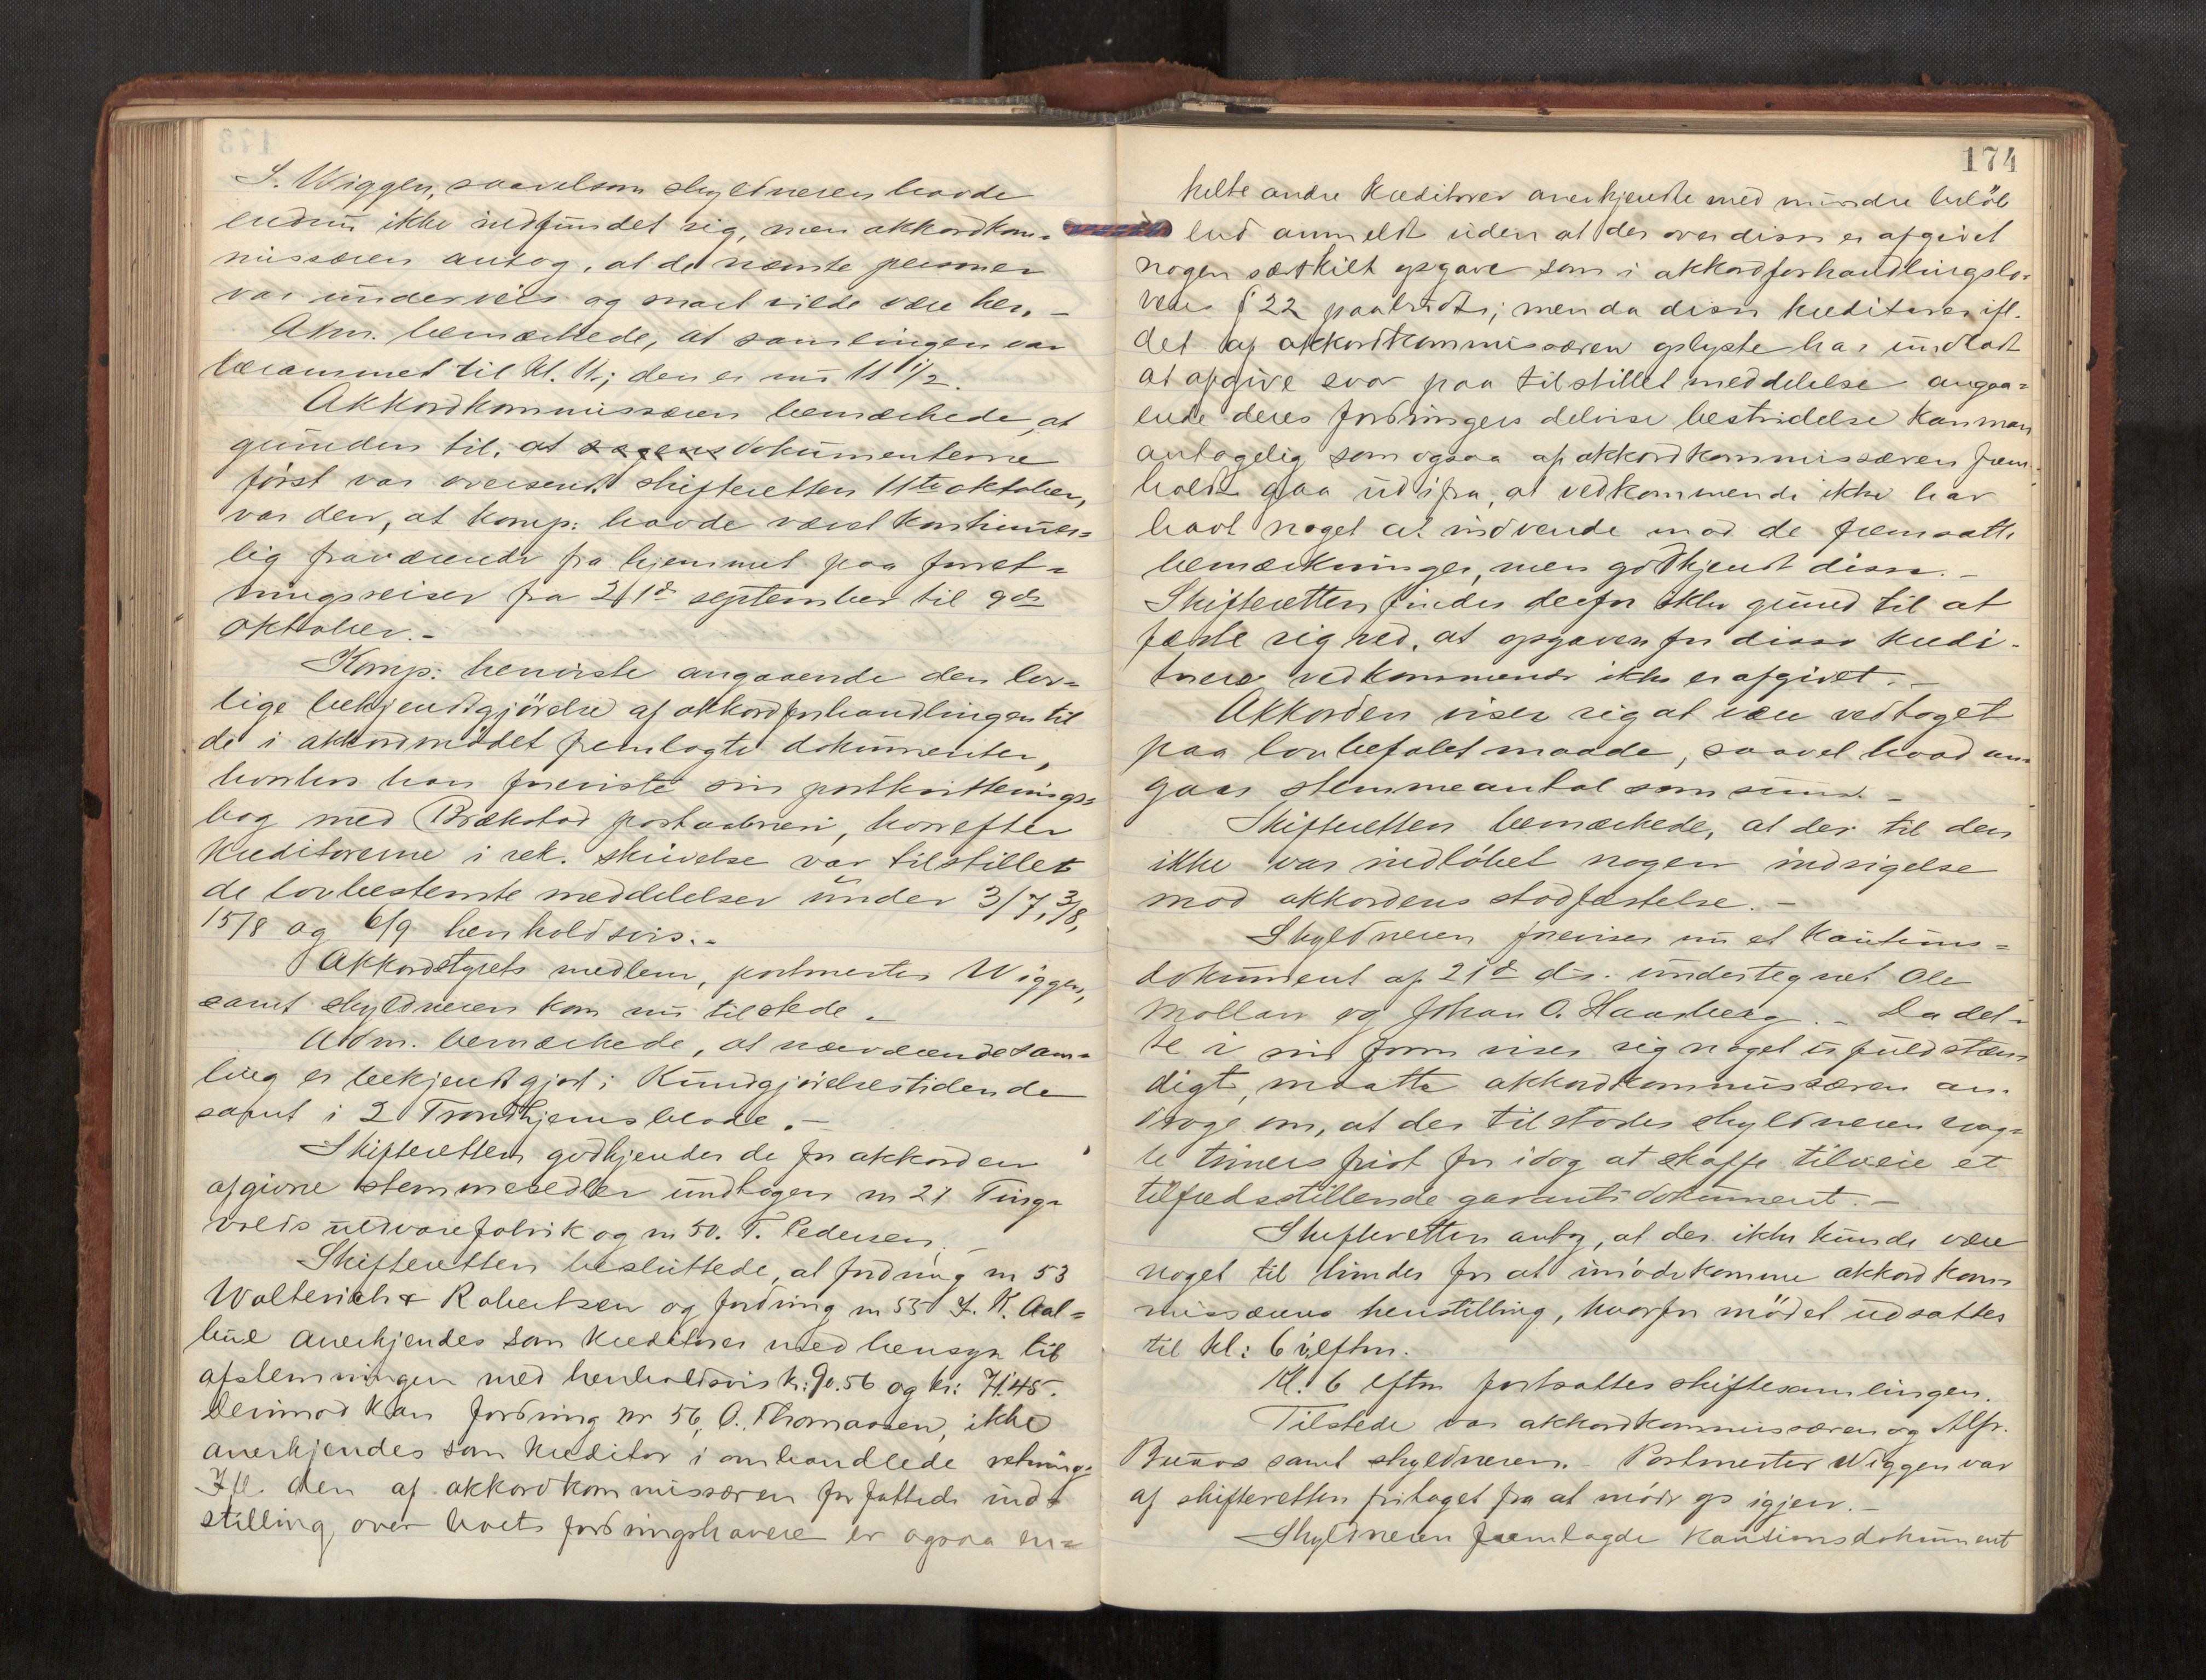 S. Wiggen, saavelsom skyldneren havde
endnu ikke indfundet sig, men akkordkom-
missæren antog, at de nævnte personer
var underveis og snart vilde være her. -
Adm. bemærkede, at samlingen var
berammet til kl. 11; den er nu 11 1/2.
Akkordkommissæren bemærkede, at
grunden til, at sagens dokumenterne
först var oversendt skifteretten 11te oktober,
var den, at komp: havde været kontinuer-
lig fraværende fra hjemmet paa forret-
ningsreiser fra 21de september til 9de
oktober. -
Komp: henviste angaaende den lov-
lige bekjendtgjörelse af akkordforhandlingen til
de i akkordmödet fremlagte dokumenter,
hvorhos han foreviste sin postkvitterings-
bog med Brækstad postaabneri, hvorefter
kreditorerne i rek. skrivelse var tilstillet
de lovbestemte meddelelser under 3/7, 3/8,
15/8 og 6/9 henholdsvis. -
Akkordstyrets medlem, postmester Wiggen,
samt skyldneren kom nu tilstede. -
Adm. bemærkede, at nærværende sam-
ling er bekjendtgjort i Kundgjörelsestidende
samt i 2 Trondhjemsblade. -
Skifteretten godkjender de for akkorden
afgivne stemmesedler undtagen nr 21 Ting-
volds uldvarefabrik og nr 50. T. Pedersen. -
Skifteretten besluttede, at fordring nr 53
Wolterich & Robertsen og fordring nr 55 J. K. Aal-
bue anerkjendes som kreditorer med hensyn til
afstemningen med henholdsvis kr: 90.56 og kr: 71.45.
Derimod kan fordring nr 56, O. Thomassen, ikke
anerkjendes som kreditor i omhandlede retning.
Ifl. den af akkordkommissæren forfattede ind-
stilling over boets fordringshavere er ogsaa en-
174
kelte andre kreditorer anerkjendte med mindre belöb
end anmeldt uden at der over disse er afgivet
nogen særskilt opgave som i akkordforhandlingslo-
vens § 22 paabudt; men da disse kreditorer ifl.
det af akkordkommissæren oplyste har undladt
at afgive svar paa tilstillet meddelelse angaa-
ende deres fordringers delvise bestridelse kan man
antagelig som ogsaa af akkordkommissæren frem-
holdt gaa ud ifra, at vedkommende ikke har
havt noget at indvende mod de fremsatte
bemærkninger, men godkjendt disse. -
Skifteretten finder derfor ikke grund til at
fæste sig ved, at opgaven for disse kredi-
torers vedkommende ikke er afgivet. -
Akkorden viser sig at være vedtaget
paa lovbefalet maade, saavel hvad an-
gaar stemmeantal som sum. -
Skifteretten bemærkede, at der til den
ikke var indlöbet nogen indsigelse
mod akkordens stadfæstelse. -
Skyldneren foreviser nu et kautions-
dokument af 21de ds. undertegnet Ole
Mollan og Johan O. Haarberg. - Da det-
te i sin form viser sig noget ufuldstæn-
digt, maatte akkordkommissæren an-
drage om, at der tilstodes skyldneren nog-
le timers frist for idag at skaffe tilveie et
tilfredsstillende garantidokument. -
Skifteretten antog, at der ikke kunde være
noget til hinder for at imödekomme akkordkom-
missærens henstilling, hvorfor mödet udsattes
til kl: 6 i eftm.
Kl. 6 eftm fortsattes skiftesamlingen.
Tilstede var akkordkommissæren og Alfr.
Buaas samt skyldneren. - Postmester Wiggen var
af skifteretten fritaget fra at möde op igjen. -
Skyldneren fremlagde kautionsdokument